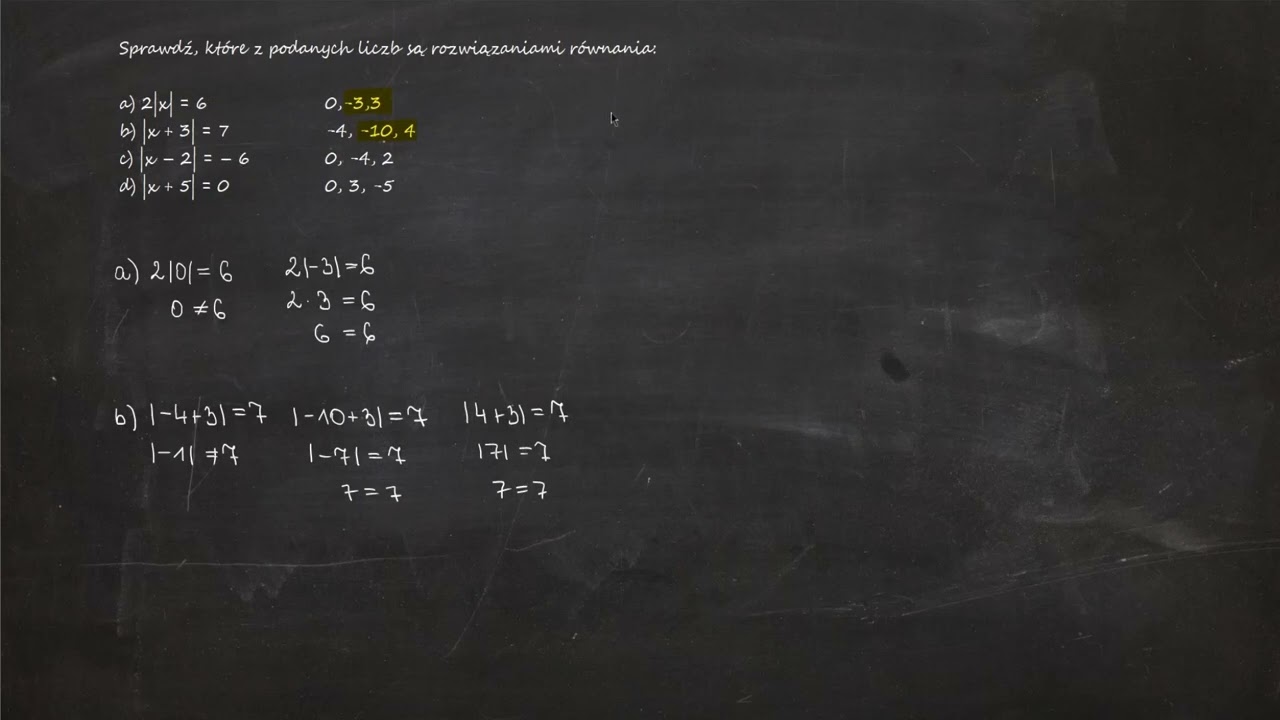 Sprawdź, które z podanych liczb są rozwiązaniami równania:
a) 2|x| = 6 0, -3,3
b) |x + 3| = 7 -4, -10, 4
c) |x - 2| = - 6 0, -4, 2
d) |x + 5| = 0 0, 3, -5
a) 2|0| = 6 2|-3| = 6
0 ≠ 6 2 · 3 = 6
6 = 6
b) |-4+3| = 7 |-10+3| = 7 |4+3| = 7
|-1| ≠ 7 |-7| = 7 |7| = 7
7 = 7 7 = 7